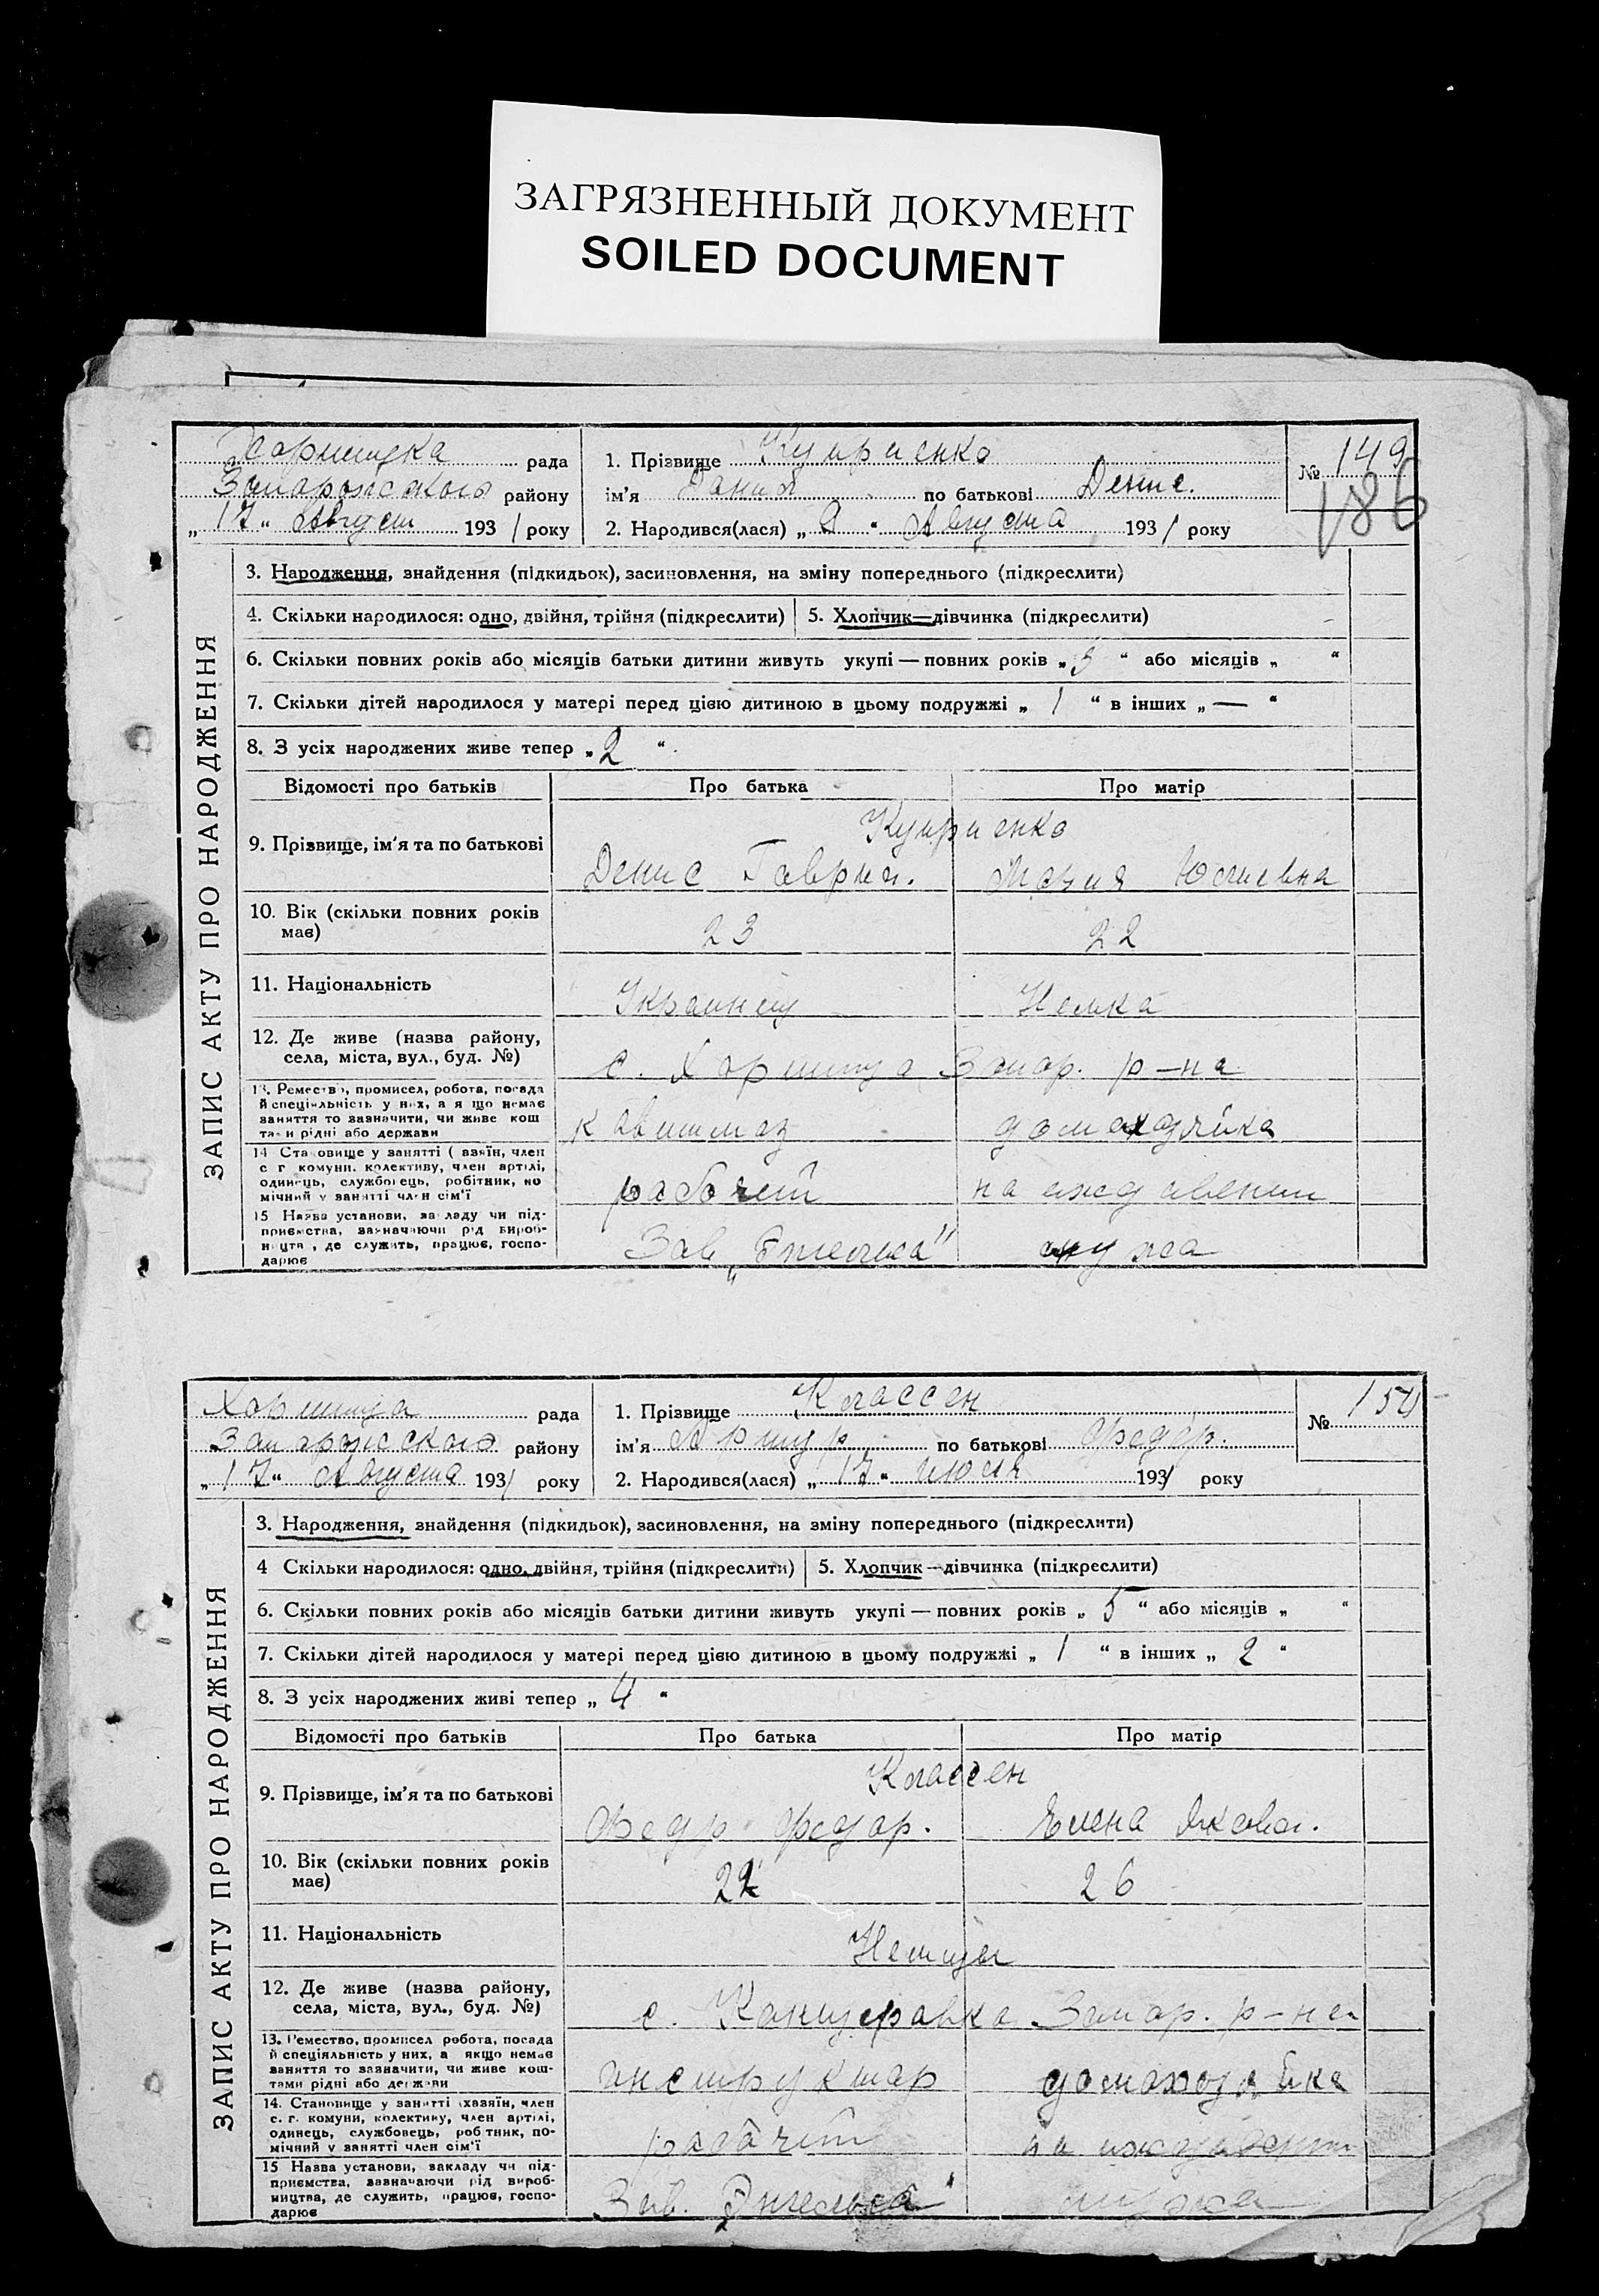 ЗАГРЯЗНЕННЫЙ ДОКУМЕНТ
SOILED DOCUMENT
рада
Запорожского району
„17“ Август 1931 року
1. Прізвище Куприенко
ім'я Данил по батькові Денис.
2. Народився(лася) „2“ Августа 1931 року
№ 149
186
ЗАПИС АКТУ ПРО НАРОДЖЕННЯ
3. Народження, знайдення (підкидьок), засиновлення, на зміну попереднього (підкреслити)
4. Скільки народилося: одно, двійня, трійня (підкреслити)
5. Хлопчик—дівчинка (підкреслити)
6. Скільки повних років або місяців батьки дитини живуть укупі — повних років „3“ або місяців „ “
7. Скільки дітей народилося у матері перед цією дитиною в цьому подружжі „1“ в інших „—“
8. З усіх народжених живе тепер „2“.
Відомості про батьків
Про батька
Про матір
9. Прізвище, ім'я та по батькові
Куприенко
Денис Гаврил.
Мария
10. Вік (скільки повних років
має)
23
22
11. Національність
Украинец
Немка
12. Де живе (назва району,
села, міста, вул., буд. №)
с. Хортица Запор. р-на
13. Ремество, промисел, робота, посада
й спеціяльність у них, а якщо немає
заняття то зазначити, чи живе кош
тами рідні або держави
домохозяйка
14 Становище у занятті (хазяїн, член
с г комуни. колективу, член артілі,
одинець, службовець, робітник, по
мічний у занятті член сім'ї
рабочий
на иждивении
15 Назва установи, закладу чи під-
приємства, зазначаючи рід вироб-
ництва, де служить, працює, госпо-
дарює
Зав. „Энгельса“
мужа
Хортица рада
Запорожского району
„17“ Августа 1931 року
1. Прізвище Классен
ім'я Артур по батькові Федор.
2. Народився(лася) „17“ июля 1931 року
№ 150
ЗАПИС АКТУ ПРО НАРОДЖЕННЯ
3. Народження, знайдення (підкидьок), засиновлення, на зміну попереднього (підкреслити)
4 Скільки народилося: одно, двійня, трійня (підкреслити)
5. Хлопчик—дівчинка (підкреслити)
6. Скільки повних років або місяців батьки дитини живуть укупі — повних років „5“ або місяців „ “
7. Скільки дітей народилося у матері перед цією дитиною в цьому подружжі „1“ в інших „2“
8. З усіх народжених живі тепер „4“
Відомості про батьків
Про батька
Про матір
9. Прізвище, ім'я та по батькові
Классен
Федор Федор.
Елена Яковл.
10. Вік (скільки повних років
має)
26
11. Національність
Немцы
12. Де живе (назва району,
села, міста, вул., буд. №)
с. Канцеровка Запор. р-на
13. Ремество, промисел робота, посада
й спеціяльність у них, а якщо немає
заняття то зазначити, чи живе кош-
тами рідні або держави
инструктор
домохозяйка
14. Становище у занятті хазяїн, член
с. г. комуни, колективу, член артілі,
одинець, службовець, робітник, по-
мічний у занятті член сім'ї
рабочий
на иждивении
15 Назва установи, закладу чи під-
приємства, зазначаючи рід вироб-
ництва, де служить, працює, госпо-
дарює
Зав. Энгельса
мужа